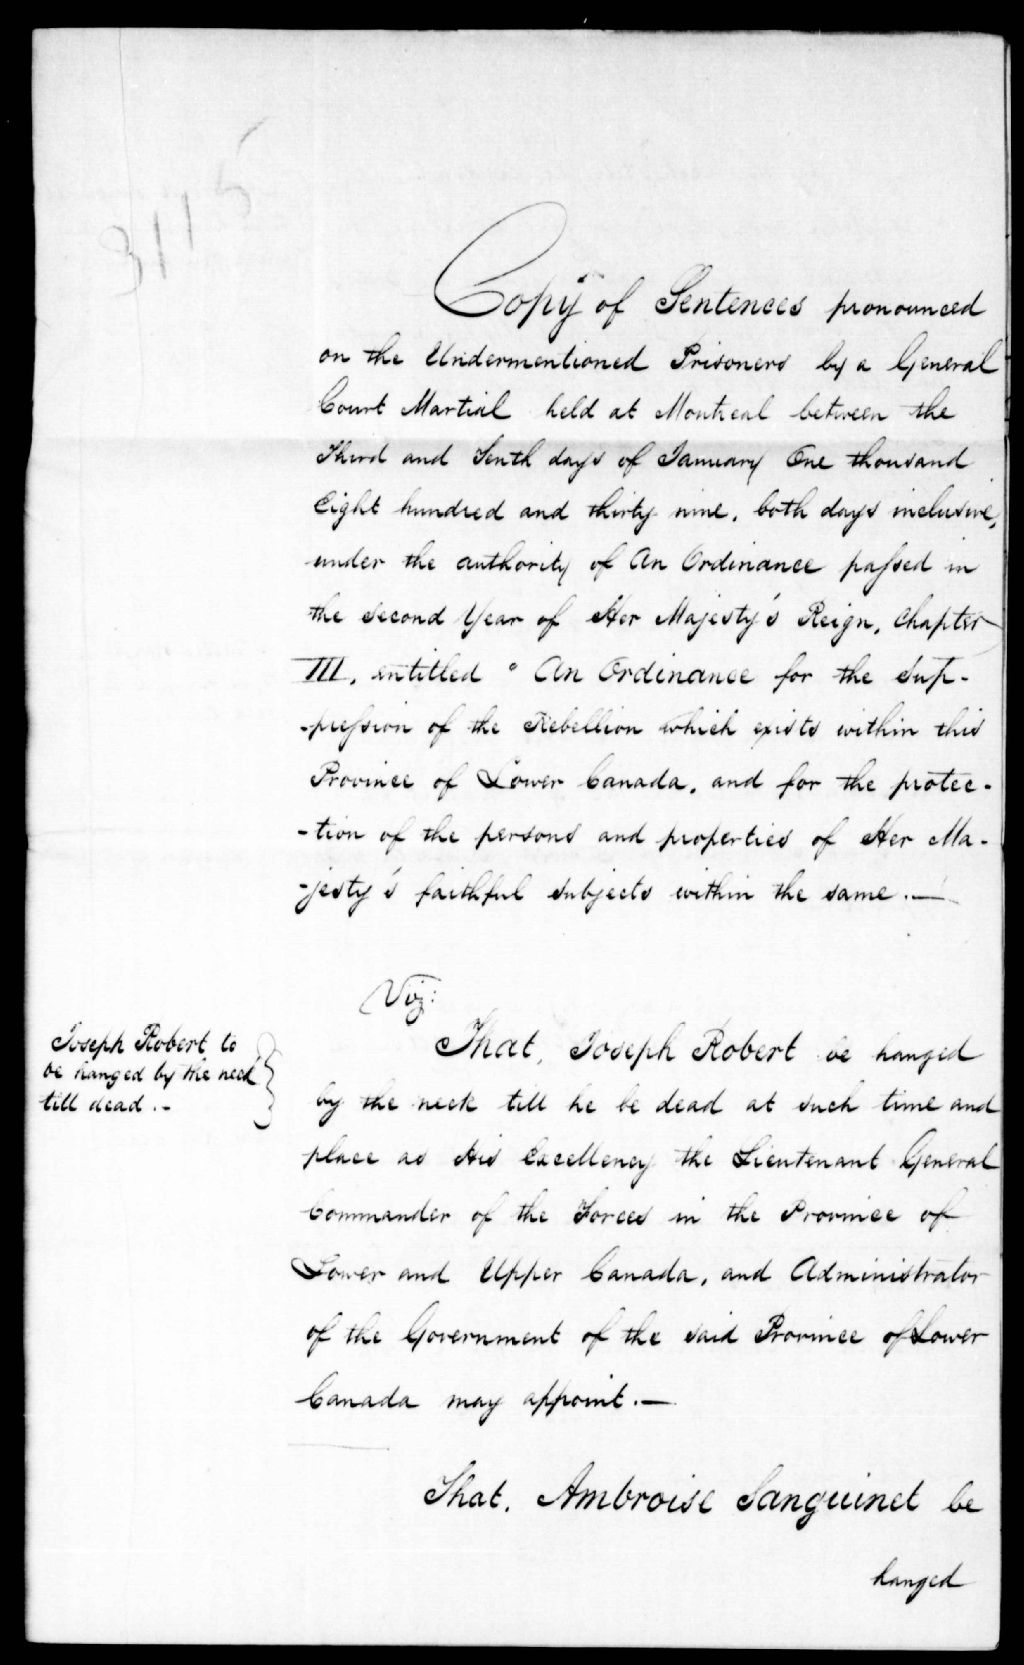 3115
Copy of Sentences pronounced
on the Undermentioned Prisoners by a General
Court Martial held at Montreal between the
Third and Tenth days of January One thousand
Eight hundred and thirty nine, both days inclusive,
under the authority of An Ordinance passed in
the Second Year of Her Majesty's Reign, Chapter
III, entitled " An Ordinance for the Sup-
-pression of the Rebellion which exists within this
Province of Lower Canada, and for the protec-
-tion of the persons and properties of Her Ma-
-jesty's faithful subjects within the same.—
Viz:
Joseph Robert, to
be hanged by the neck
till dead.-
That, Joseph Robert be hanged
by the neck till he be dead at such time and
place as His Excellency the Lieutenant General
Commander of the Forces in the Province of
Lower and Upper Canada, and Administrator
of the Government of the said Province of Lower
Canada may appoint.—
That, Ambroise Sanguinet be
hanged